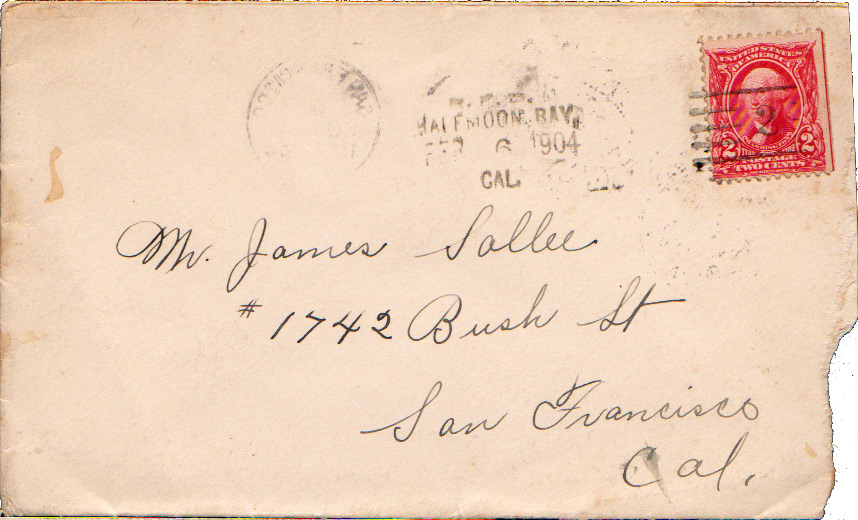 HALFMOON BAY,
FEB 6 1904
CAL.
UNITED STATES
OF AMERICA
2 2
POSTAGE
TWO CENTS
Mr. James Sallee
# 1742 Bush St
San Francisco
Cal.